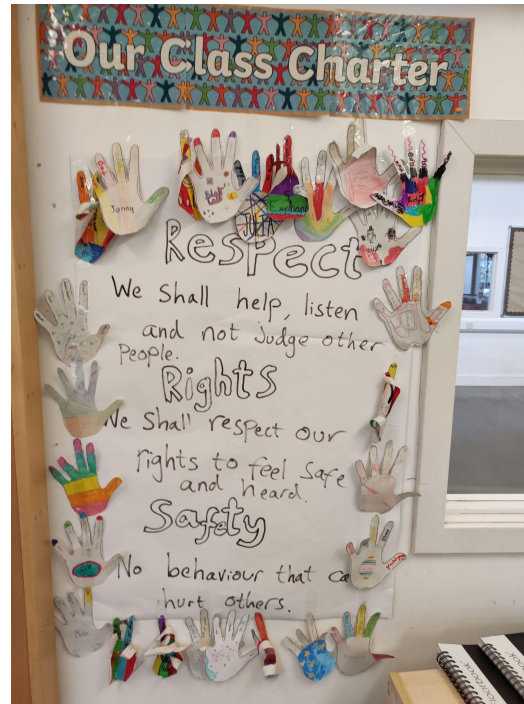 Our Class Charter
Jonny
Respect
We Shall help, listen
and not Judge other
People.
Rights
We Shall respect our
rights to feel Safe
and heard.
Safety
No behaviour that ca
hurt others.
floorbook
floorbook